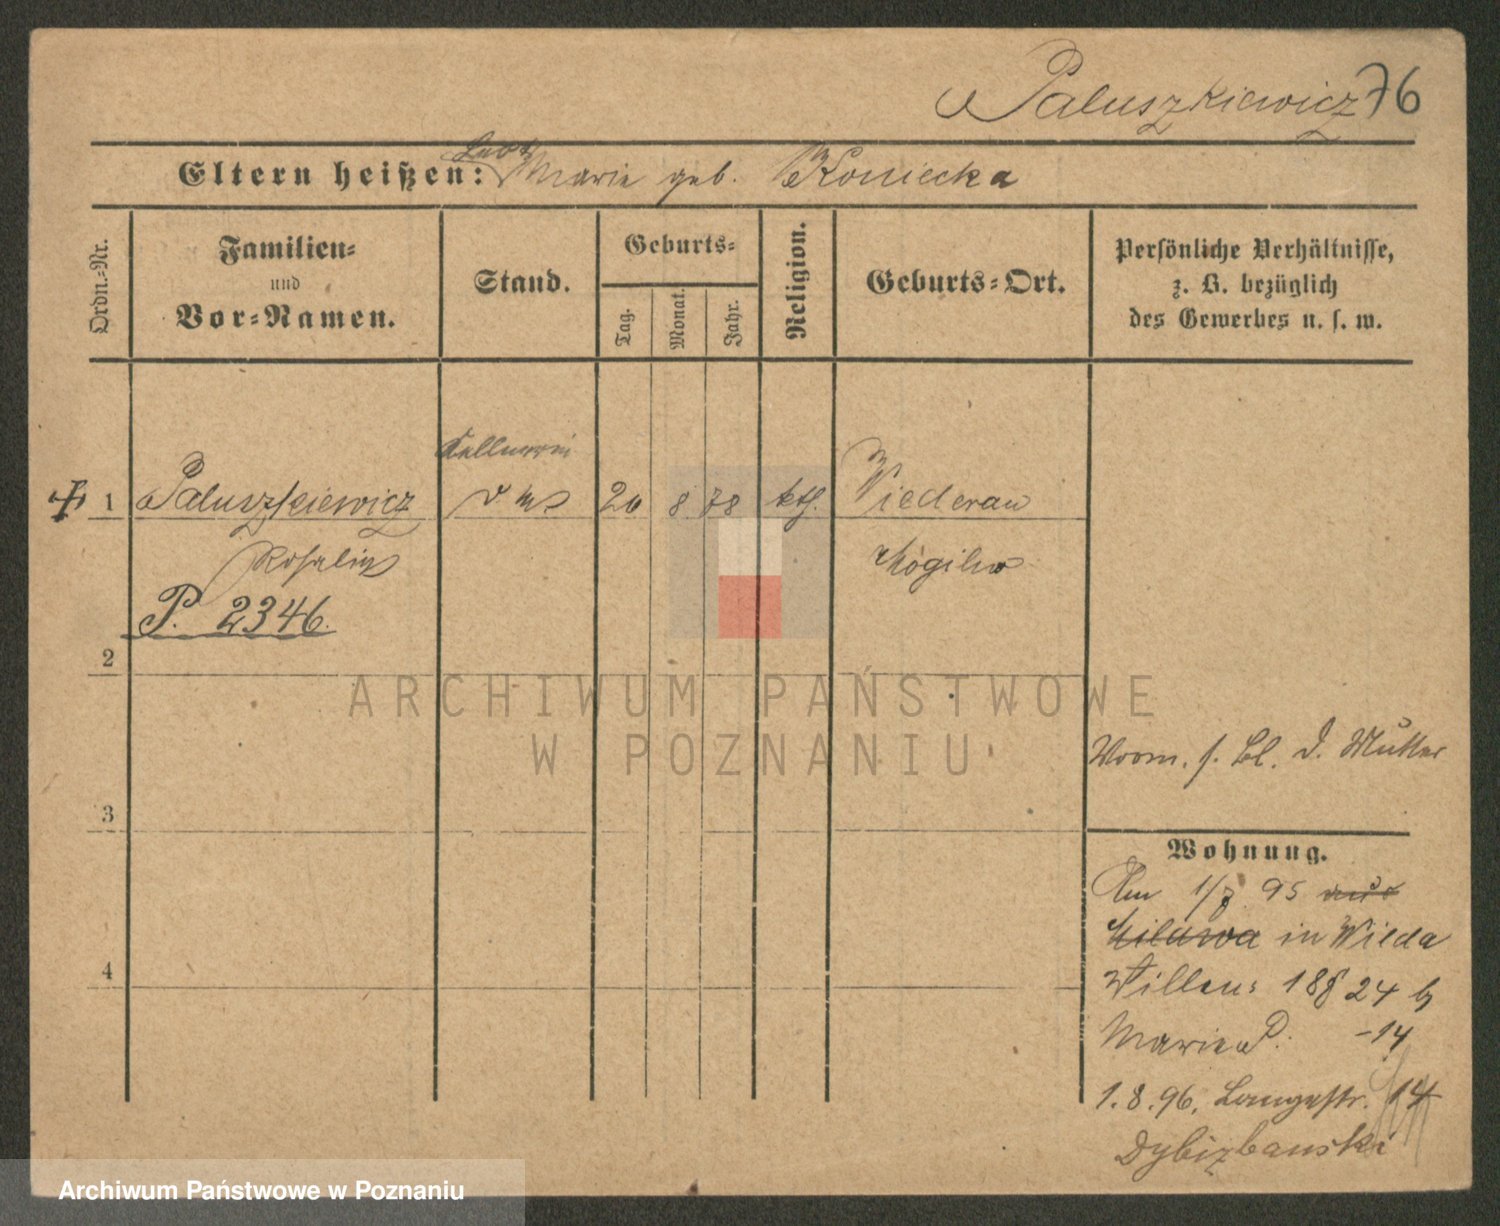 Paluszkiewicz 76
Eltern heißen: Marie geb. Koniecka
Ordn.-Nr.
Familien-
und
Vor-Namen.
Stand.
Geburts-
Tag.
Monat.
Jahr.
Religion.
Geburts-Ort.
Persönliche Verhältnisse,
z. B. bezüglich
des Gewerbes u. s. w.
Kellnerin
1 Paluszkiewicz 20 8 78 kth. Wiederau
Rosalie Mogilno
P. 2346.
2
ARCHIWUM PAŃSTWOWE
W POZNANIU
Vorm. s. Bl. d. Mutter
3
Wohnung.
Am 1/7 95 aus
Milawa in Wilda
4
24 b
Marie P. -14
1.8.96. Langestr. 14
Dybizbanski
Archiwum Państwowe w Poznaniu